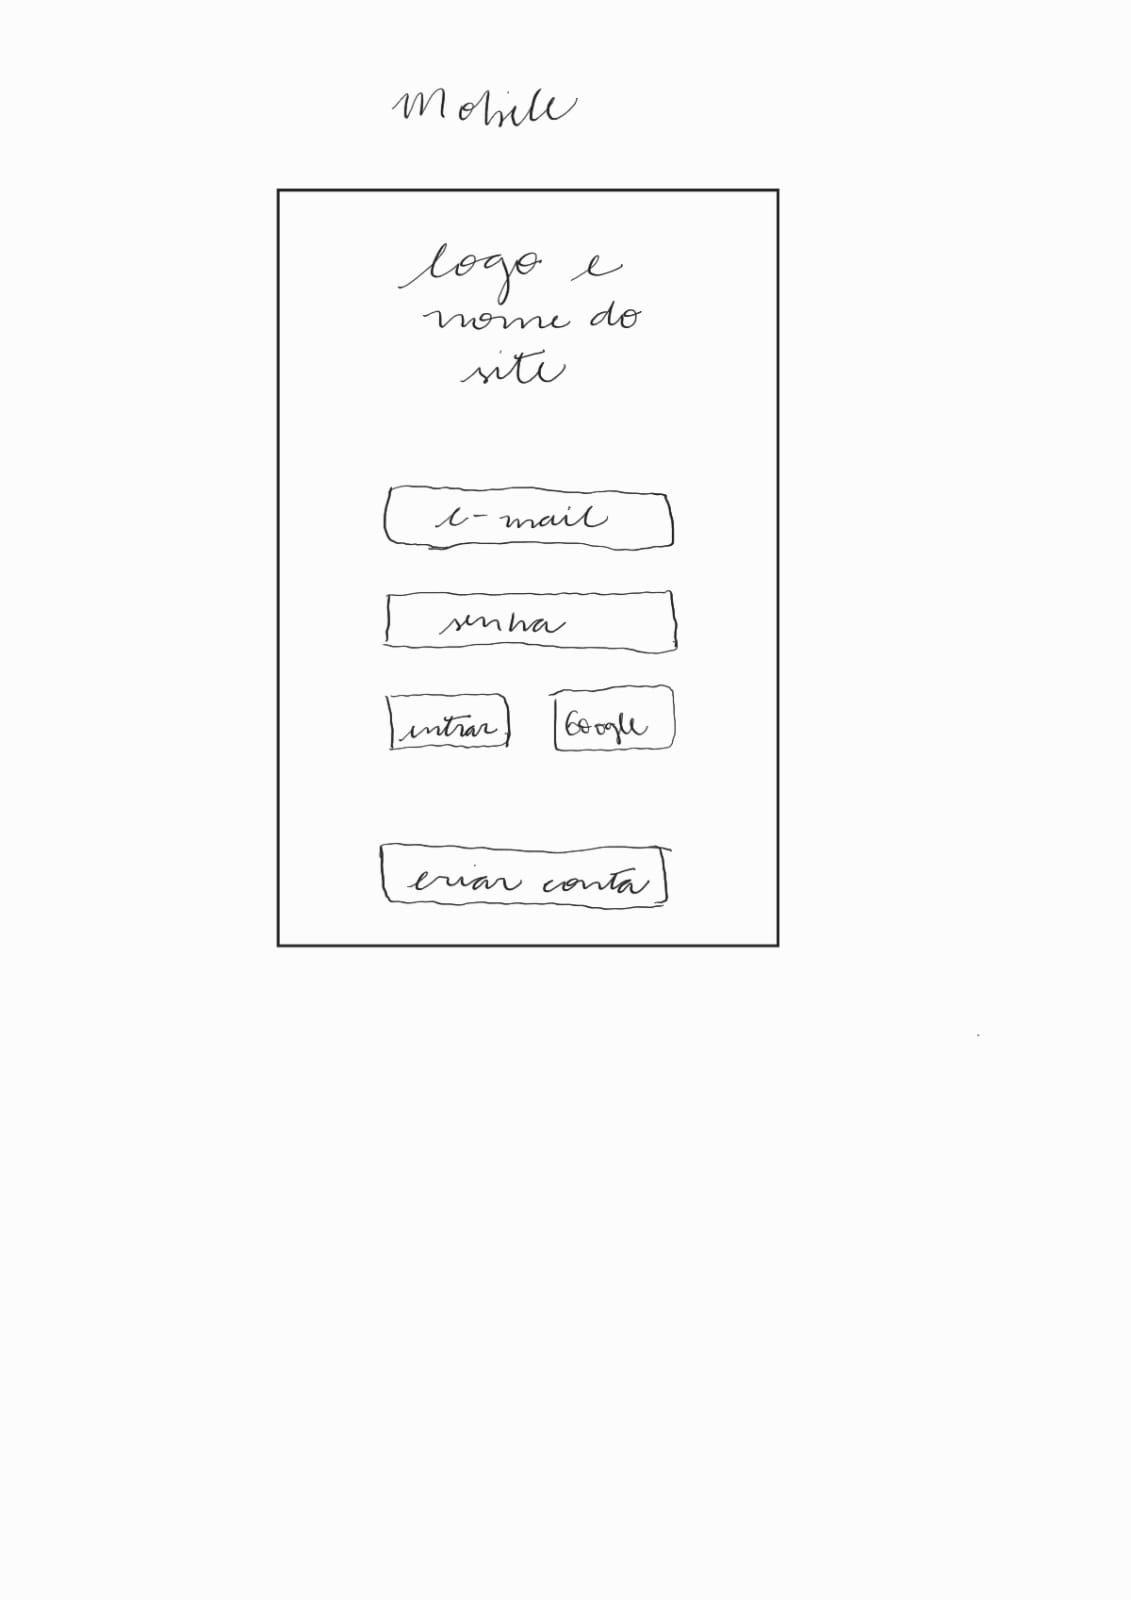 Mobile
logo e
nome do
site
e-mail
senha
entrar
Google
criar conta